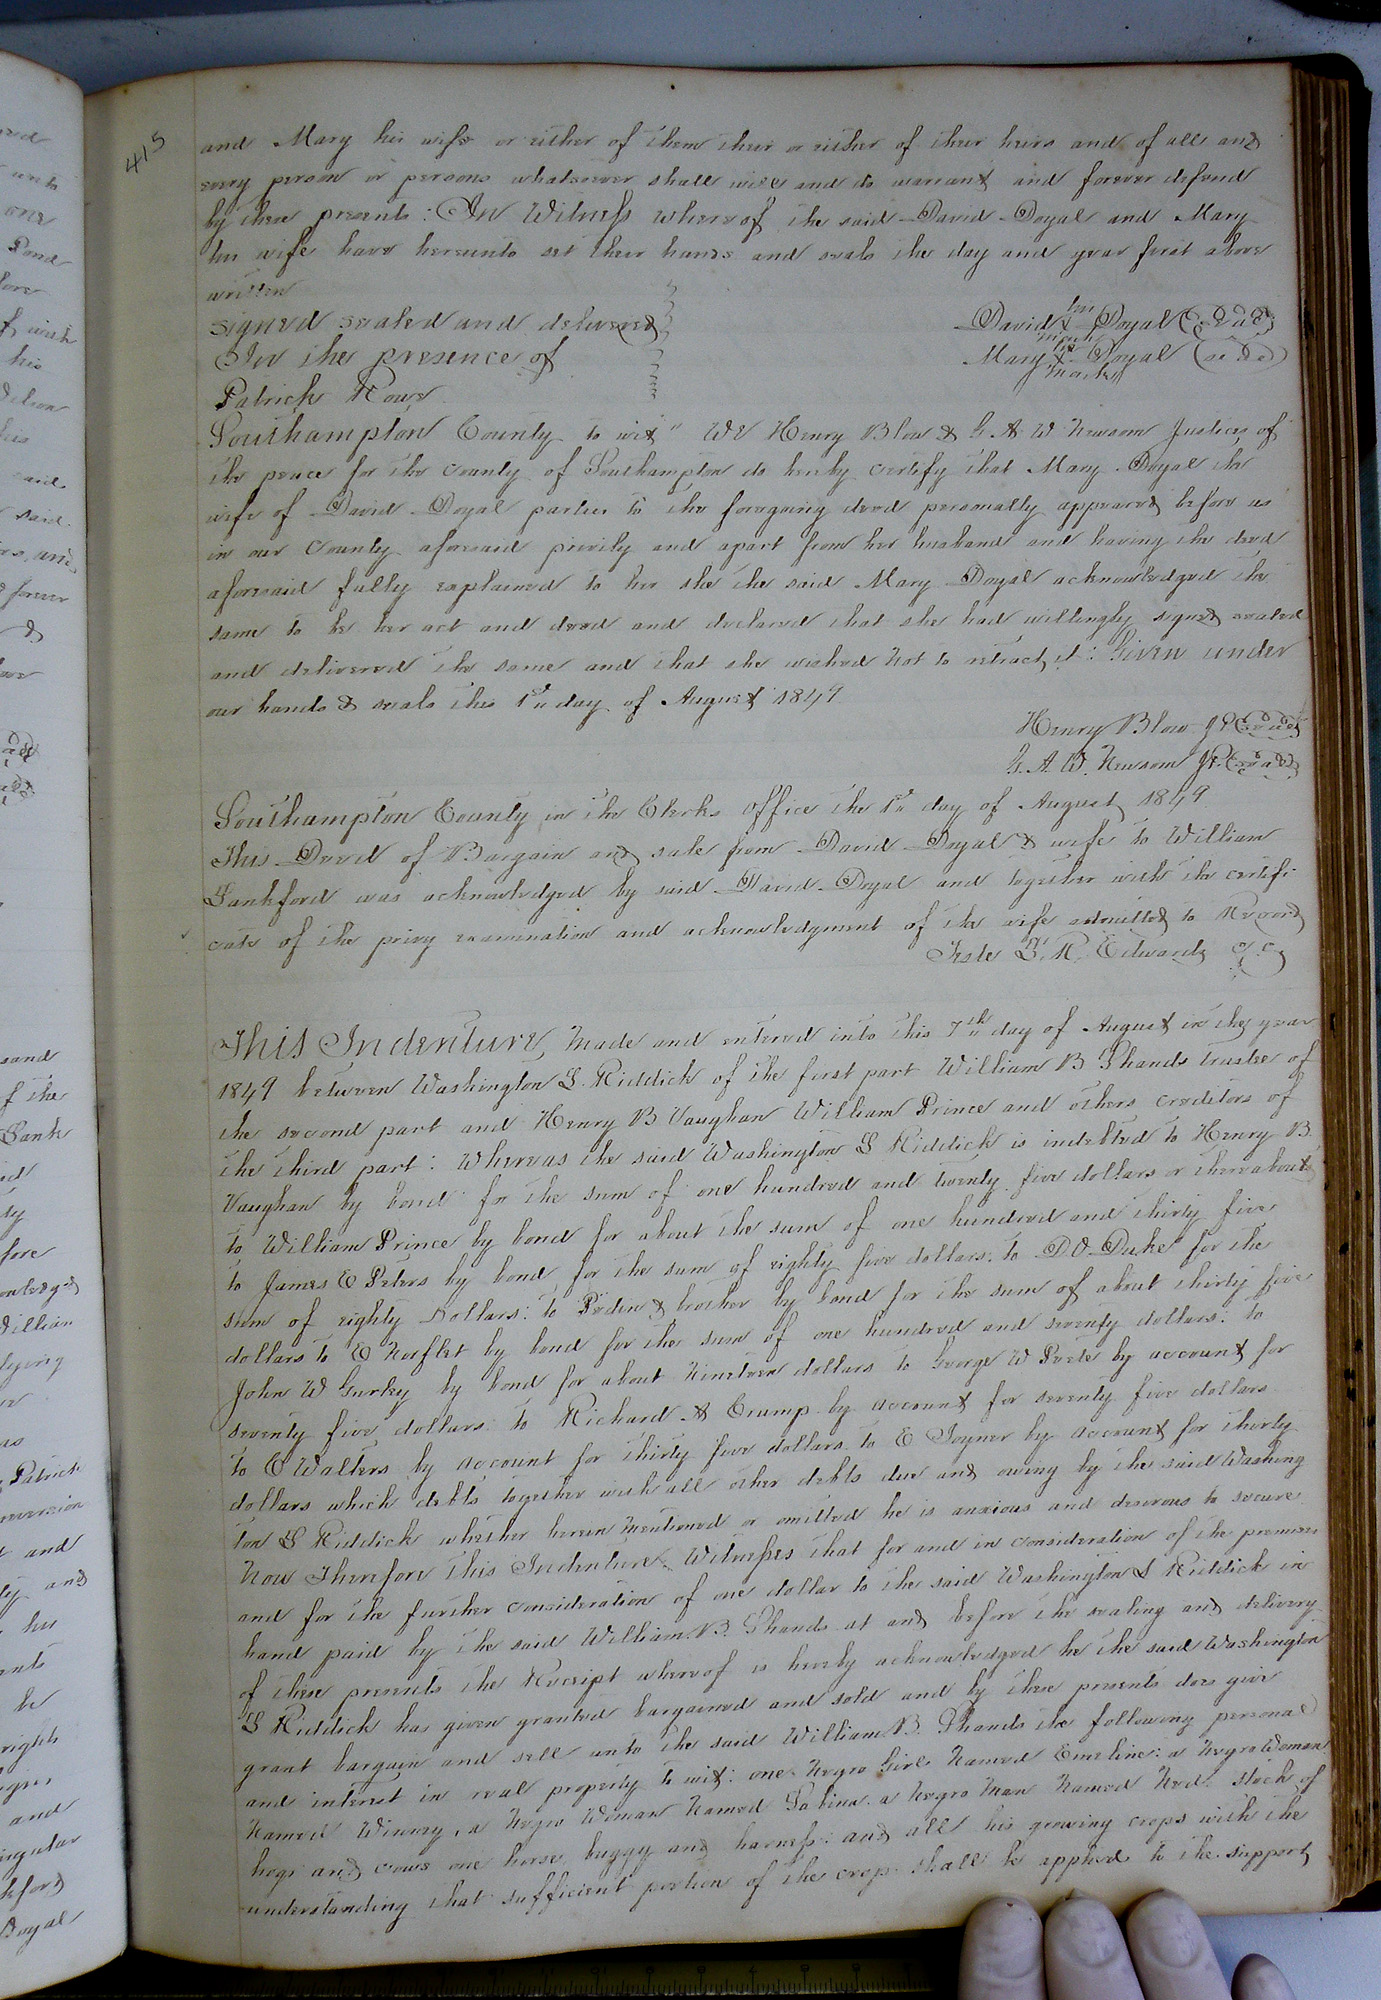 415
and Mary his wife or either of them their or either of their heirs and of all and
every person or persons whatsoever shall will and do warrant and forever defend
by these presents: In Witness whereof the said David Doyal and Mary
his wife have hereunto set their hands and seals the day and year first above
written
signed sealed and delivered
In the presence of
Patrick Rows
his
David X Doyal (seal)
mark
her
Mary X Doyal (seal)
mark
Southampton County to wit" We Henry Blow & G. A. W. Newsom Justices of
the peace for the County of Southampton do hereby certify that Mary Doyal the
wife of David Doyal parties to the foregoing deed personally appeared before us
in our County aforesaid privily and apart from her husband and having the deed
aforesaid fully explained to her she the said Mary Doyal acknowledged the
same to be her act and deed and declared that she had willingly signed sealed
and delivered the same and that she wished not to retract it: Given under
our hands & seals this 1st day of August 1849
Henry Blow JP (seal)
G. A. W. Newsom JP. (seal)
Southampton County in the Clerks Office the 1st day of August 1849
This Deed of Bargain and sale from David Doyal & wife to William
Lankford was acknowledged by said David Doyal and together with the certifi
cate of the privy examination and acknowledgment of the wife admitted to Record
Teste L. R. Edwards c.c.
This Indenture, Made and entered into this 7th day of August in the year
1849 between Washington L. Riddick of the first part William B Shands trustee of
the second part and Henry B Vaughan William Prince and others creditors of
the third part: Whereas the said Washington L Riddick is indebted to Henry B.
Vaughan by bond for the sum of one hundred and twenty five dollars or thereabouts
to William Prince by bond for about the sum of one hundred and thirty five
to James E Peters by bond for the sum of eighty five dollars. to D. O. Duke for the
sum of eighty Dollars: to Peden & brother by bond for the sum of about thirty five
dollars to E Norflet by bond for the sum of one hundred and seventy dollars: to
John W Gurley by bond for about Nineteen dollars to George W Peete by account for
seventy five dollars to Richard A Crump by account for seventy five dollars
to E Walters by account for thirty five dollars to E Joyner by account for thirty
dollars which debts together with all other debts due and owing by the said Washing
ton L Riddick whether herein mentioned or omitted he is anxious and desirous to secure
Now Therefore This Indenture: Witnesses that for and in consideration of the premises
and for the further consideration of one dollar to the said Washington L Riddick in
hand paid by the said William B. Shands at and before the sealing and delivery
of these presents the Receipt whereof is hereby acknowledged he the said Washington
L Riddick has given granted bargained and sold and by these presents does give
grant bargain and sell unto the said William B. Shands the following personal
and interest in real property to wit: one Negro Girl Named Emeline: a Negro Woman
Named Winny, a Negro Woman Named Sabina. a Negro Man Named Ned. stock of
hogs and cows one horse, buggy and harness: and all his growing crops with the
understanding that sufficient portion of the crop shall be applied to the support